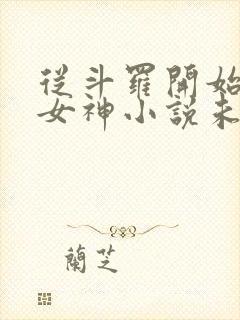 從斗羅開始
女神小説未
蘭芝